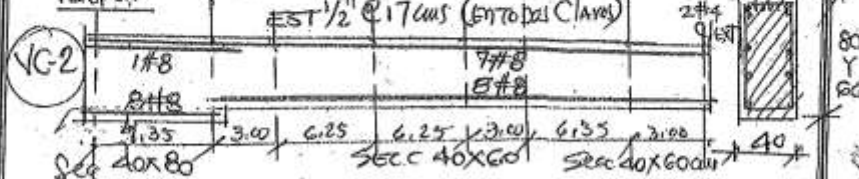 EST 1/2" @ 17 cms (EN TODOS CLAROS)
2#4
EXT
VC-2
1#8
7#8
8#8
8#8
80
Y
60
6.35 3.00 6.25 6.25 3.00 6.35 3.00
40
SECC 40X80 SECC 40X60 SECC 40X60cm